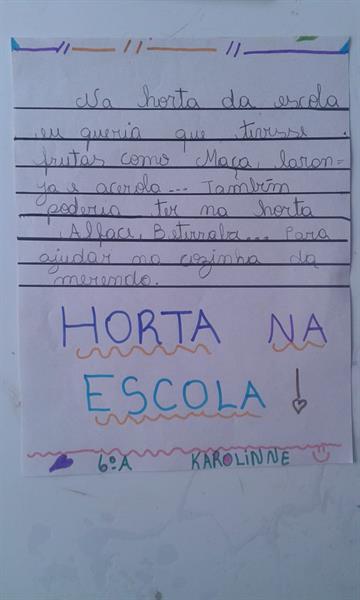 Na horta da escola
eu queria que tivesse
frutas como Maça, laran=
ja e acerola... Também
poderia ter na horta
Alface, Beterraba... Para
ajudar na cozinha da
merenda.
HORTA NA
ESCOLA
6ºA KAROLINNE